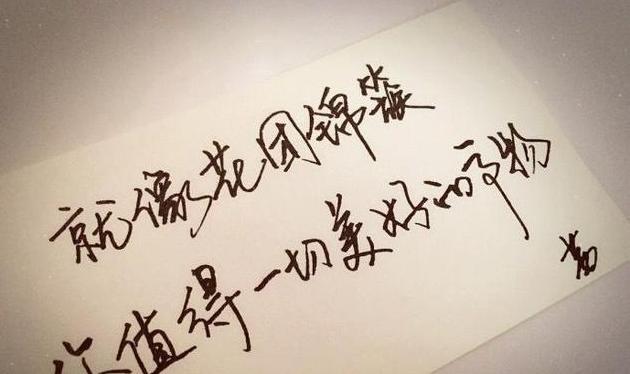 就像花团锦簇
你值得一切美好的事物